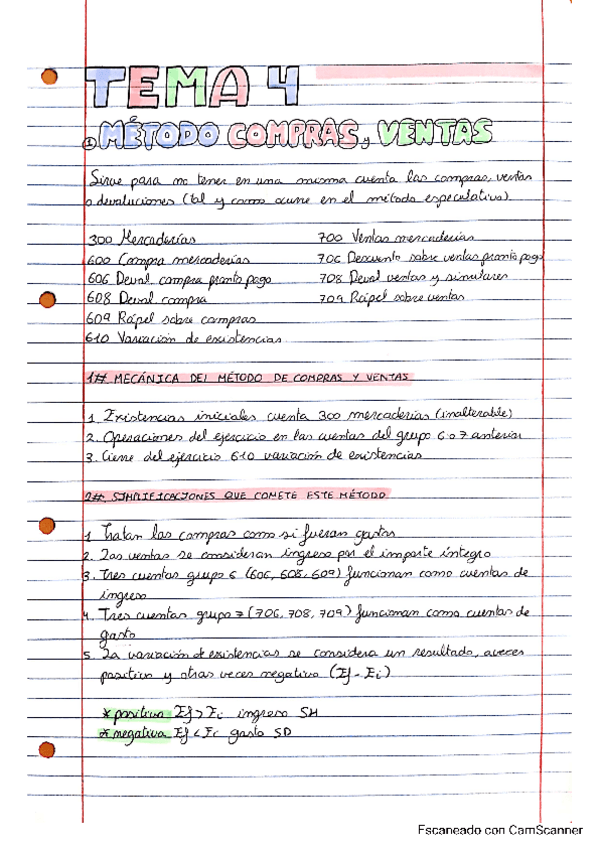 TEMA 4
① MÉTODO COMPRAS y VENTAS
Sirve para no tener en una misma cuenta las compras, ventas
o devoluciones (tal y como ocurre en el método especulativo).
300 Mercaderías 700 Ventas mercaderías
600 Compra mercaderías 706 Descuento sobre ventas pronto pago
606 Deval compra pronto pago 708 Deval ventas y similares
608 Deval compra 709 Rápel sobre ventas
609 Rápel sobre compras
610 Variación de existencias
1# MECÁNICA DEL MÉTODO DE COMPRAS Y VENTAS
1. Existencias iniciales cuenta 300 mercaderías (inalterable)
2. Operaciones del ejercicio en las cuentas del grupo 6 o 7 anterior
3. Cierre del ejercicio 610 variación de existencias
2# SIMPLIFICACIONES QUE COMETE ESTE MÉTODO
1. Tratan las compras como si fueran gastos
2. Las ventas se consideran ingreso por el importe íntegro
3. Tres cuentas grupo 6 (606, 608, 609) funcionan como cuentas de
ingreso
4. Tres cuentas grupo 7 (706, 708, 709) funcionan como cuentas de
gasto
5. La variación de existencias se considera un resultado, aveces
positivo y otras veces negativo (Ef - Ei)
* positiva Ef > Ei ingreso SH
* negativa Ef < Ei gasto SD
Escaneado con CamScanner